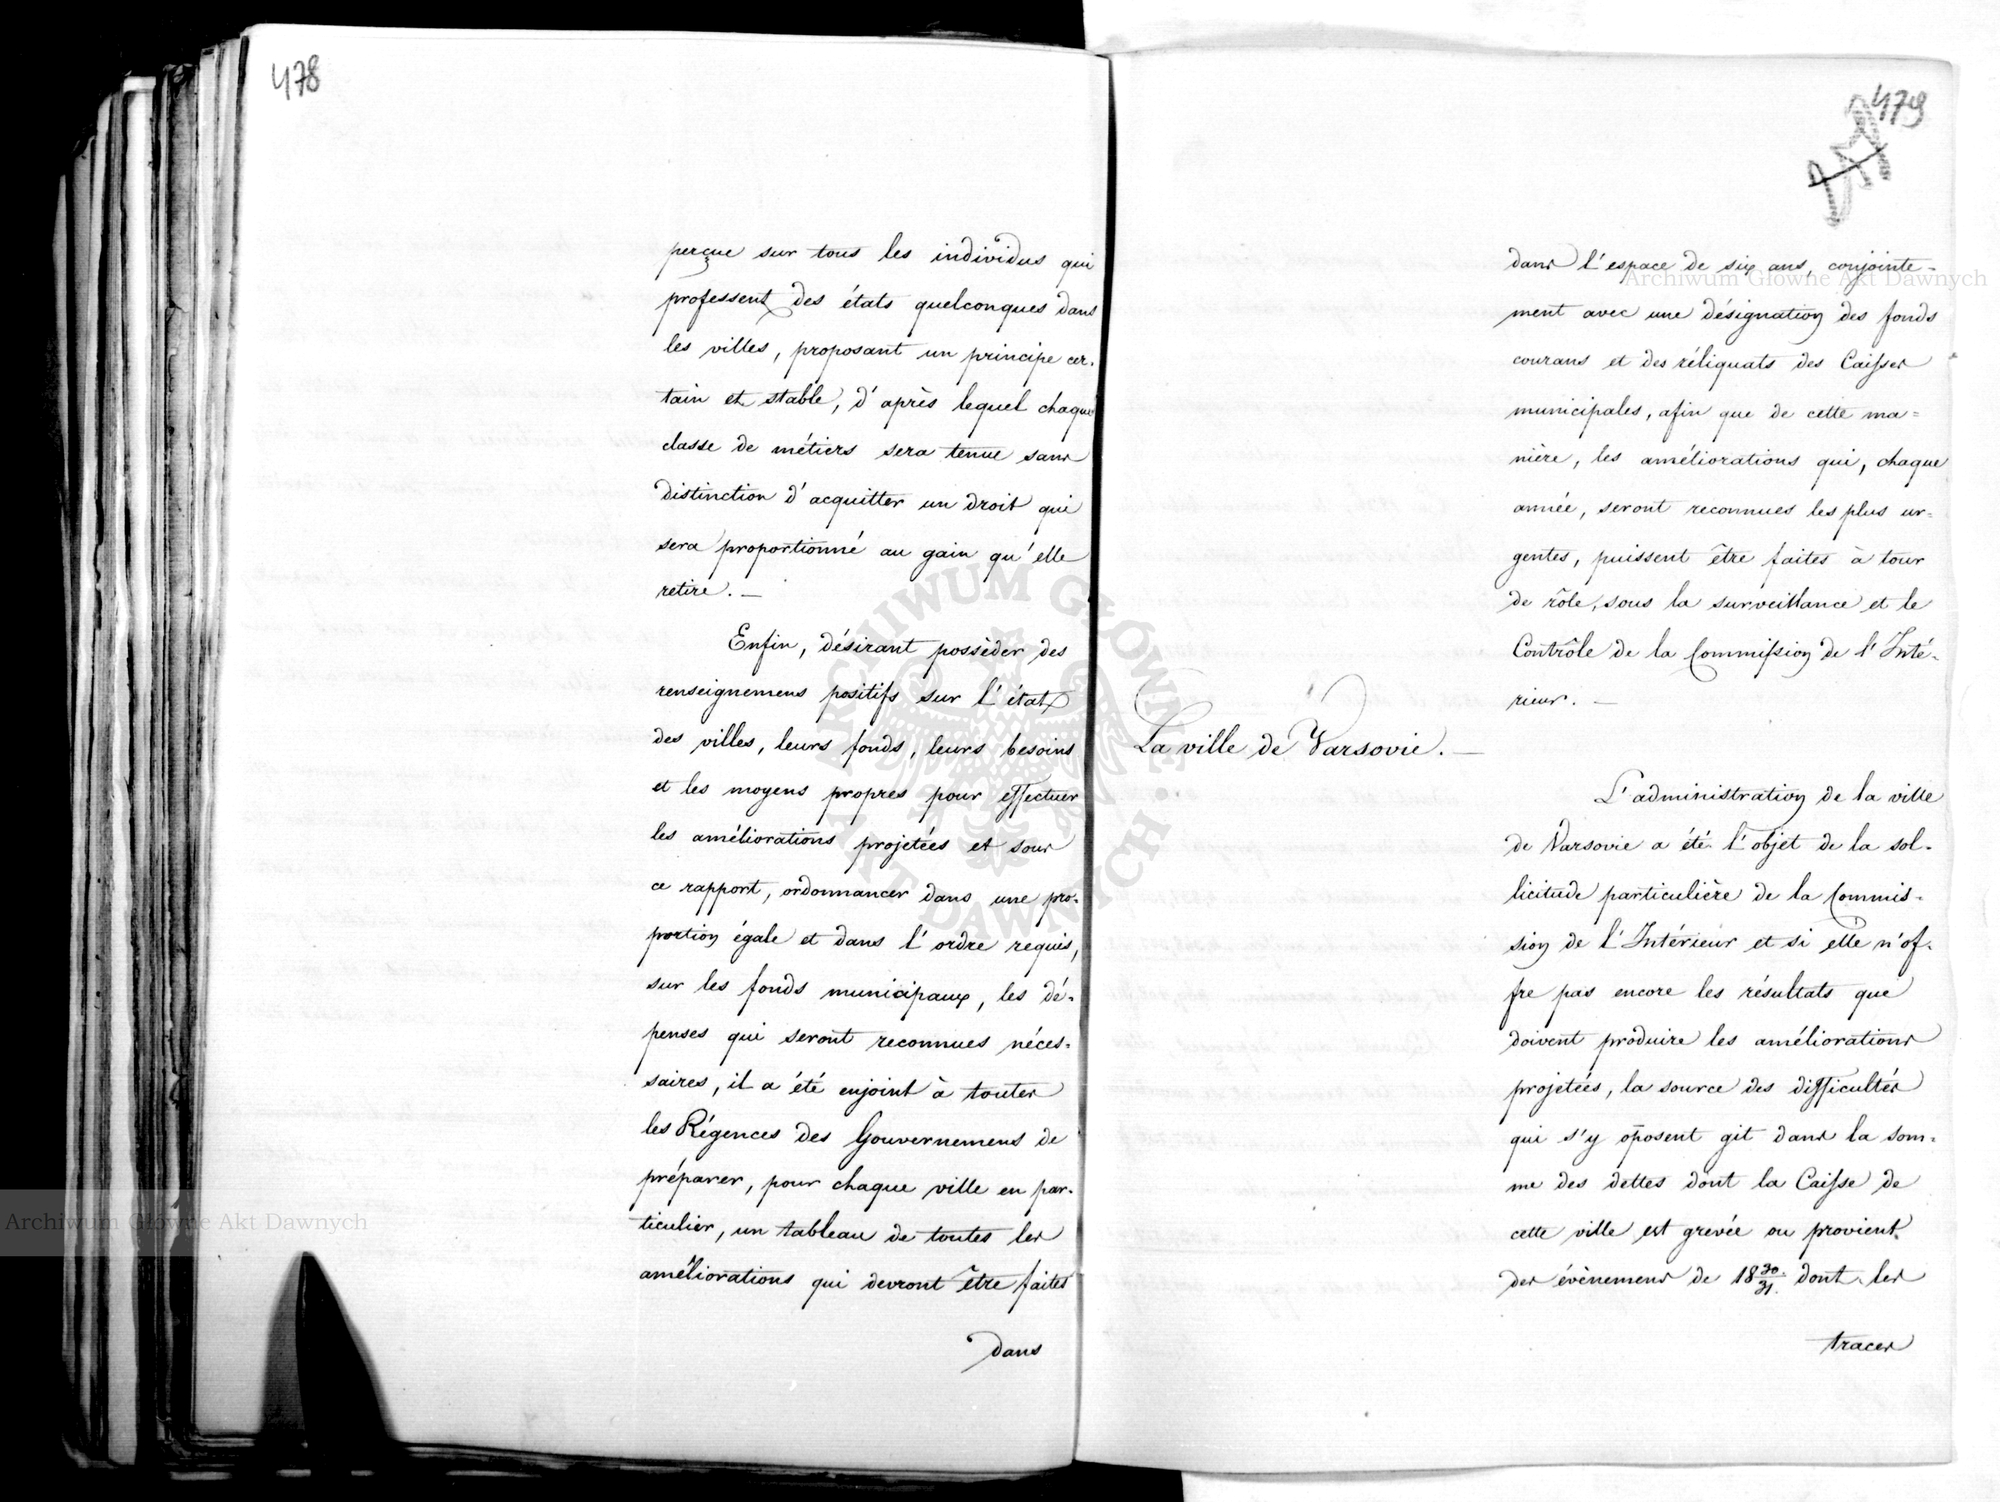 478
perçue sur tous les individus qui
professent des états quelconques dans
les villes, proposant un principe cer-
tain et stable, d'après lequel chaque
classe de métiers sera tenue sans
distinction d'acquitter un droit qui
sera proportionné au gain qu'elle
retire. —
Enfin, désirant possèder des
renseignemens positifs sur l'état
des villes, leurs fonds, leurs besoins
et les moyens propres pour effectuer
les améliorations projetées et sous
ce rapport, ordonnancer dans une pro-
portion égale et dans l'ordre requis,
sur les fonds municipaux, les dé-
penses qui seront reconnues néces-
saires, il a été enjoint à toutes
les Régences des Gouvernemens de
préparer, pour chaque ville en par-
ticulier, un tableau de toutes les
améliorations qui devront être faites
dans
479
dans l'espace de six ans, conjointe-
ment avec une désignation des fonds
courans et des réliquats des Caisses
municipales, afin que de cette ma-
nière, les améliorations qui, chaque
année, seront reconnues les plus ur-
gentes, puissent être faites à tour
de rôle, sous la surveillance et le
Contrôle de la Commission de l'Inté-
rieur. —
La ville de Varsovie. —
L'administration de la ville
de Varsovie a été l'objet de la sol-
licitude particulière de la Commis-
sion de l'Intérieur et si elle n'of-
fre pas encore les résultats que
doivent produire les améliorations
projetées, la source des difficultés
qui s'y oposent git dans la som-
me des dettes dont la Caisse de
cette ville est grevée ou provient
des évènemens de 18 30/31. dont les
traces
Archiwum Główne Akt Dawnych
Archiwum Główne Akt Dawnych
ARCHIWUM GŁÓWNE AKT DAWNYCH